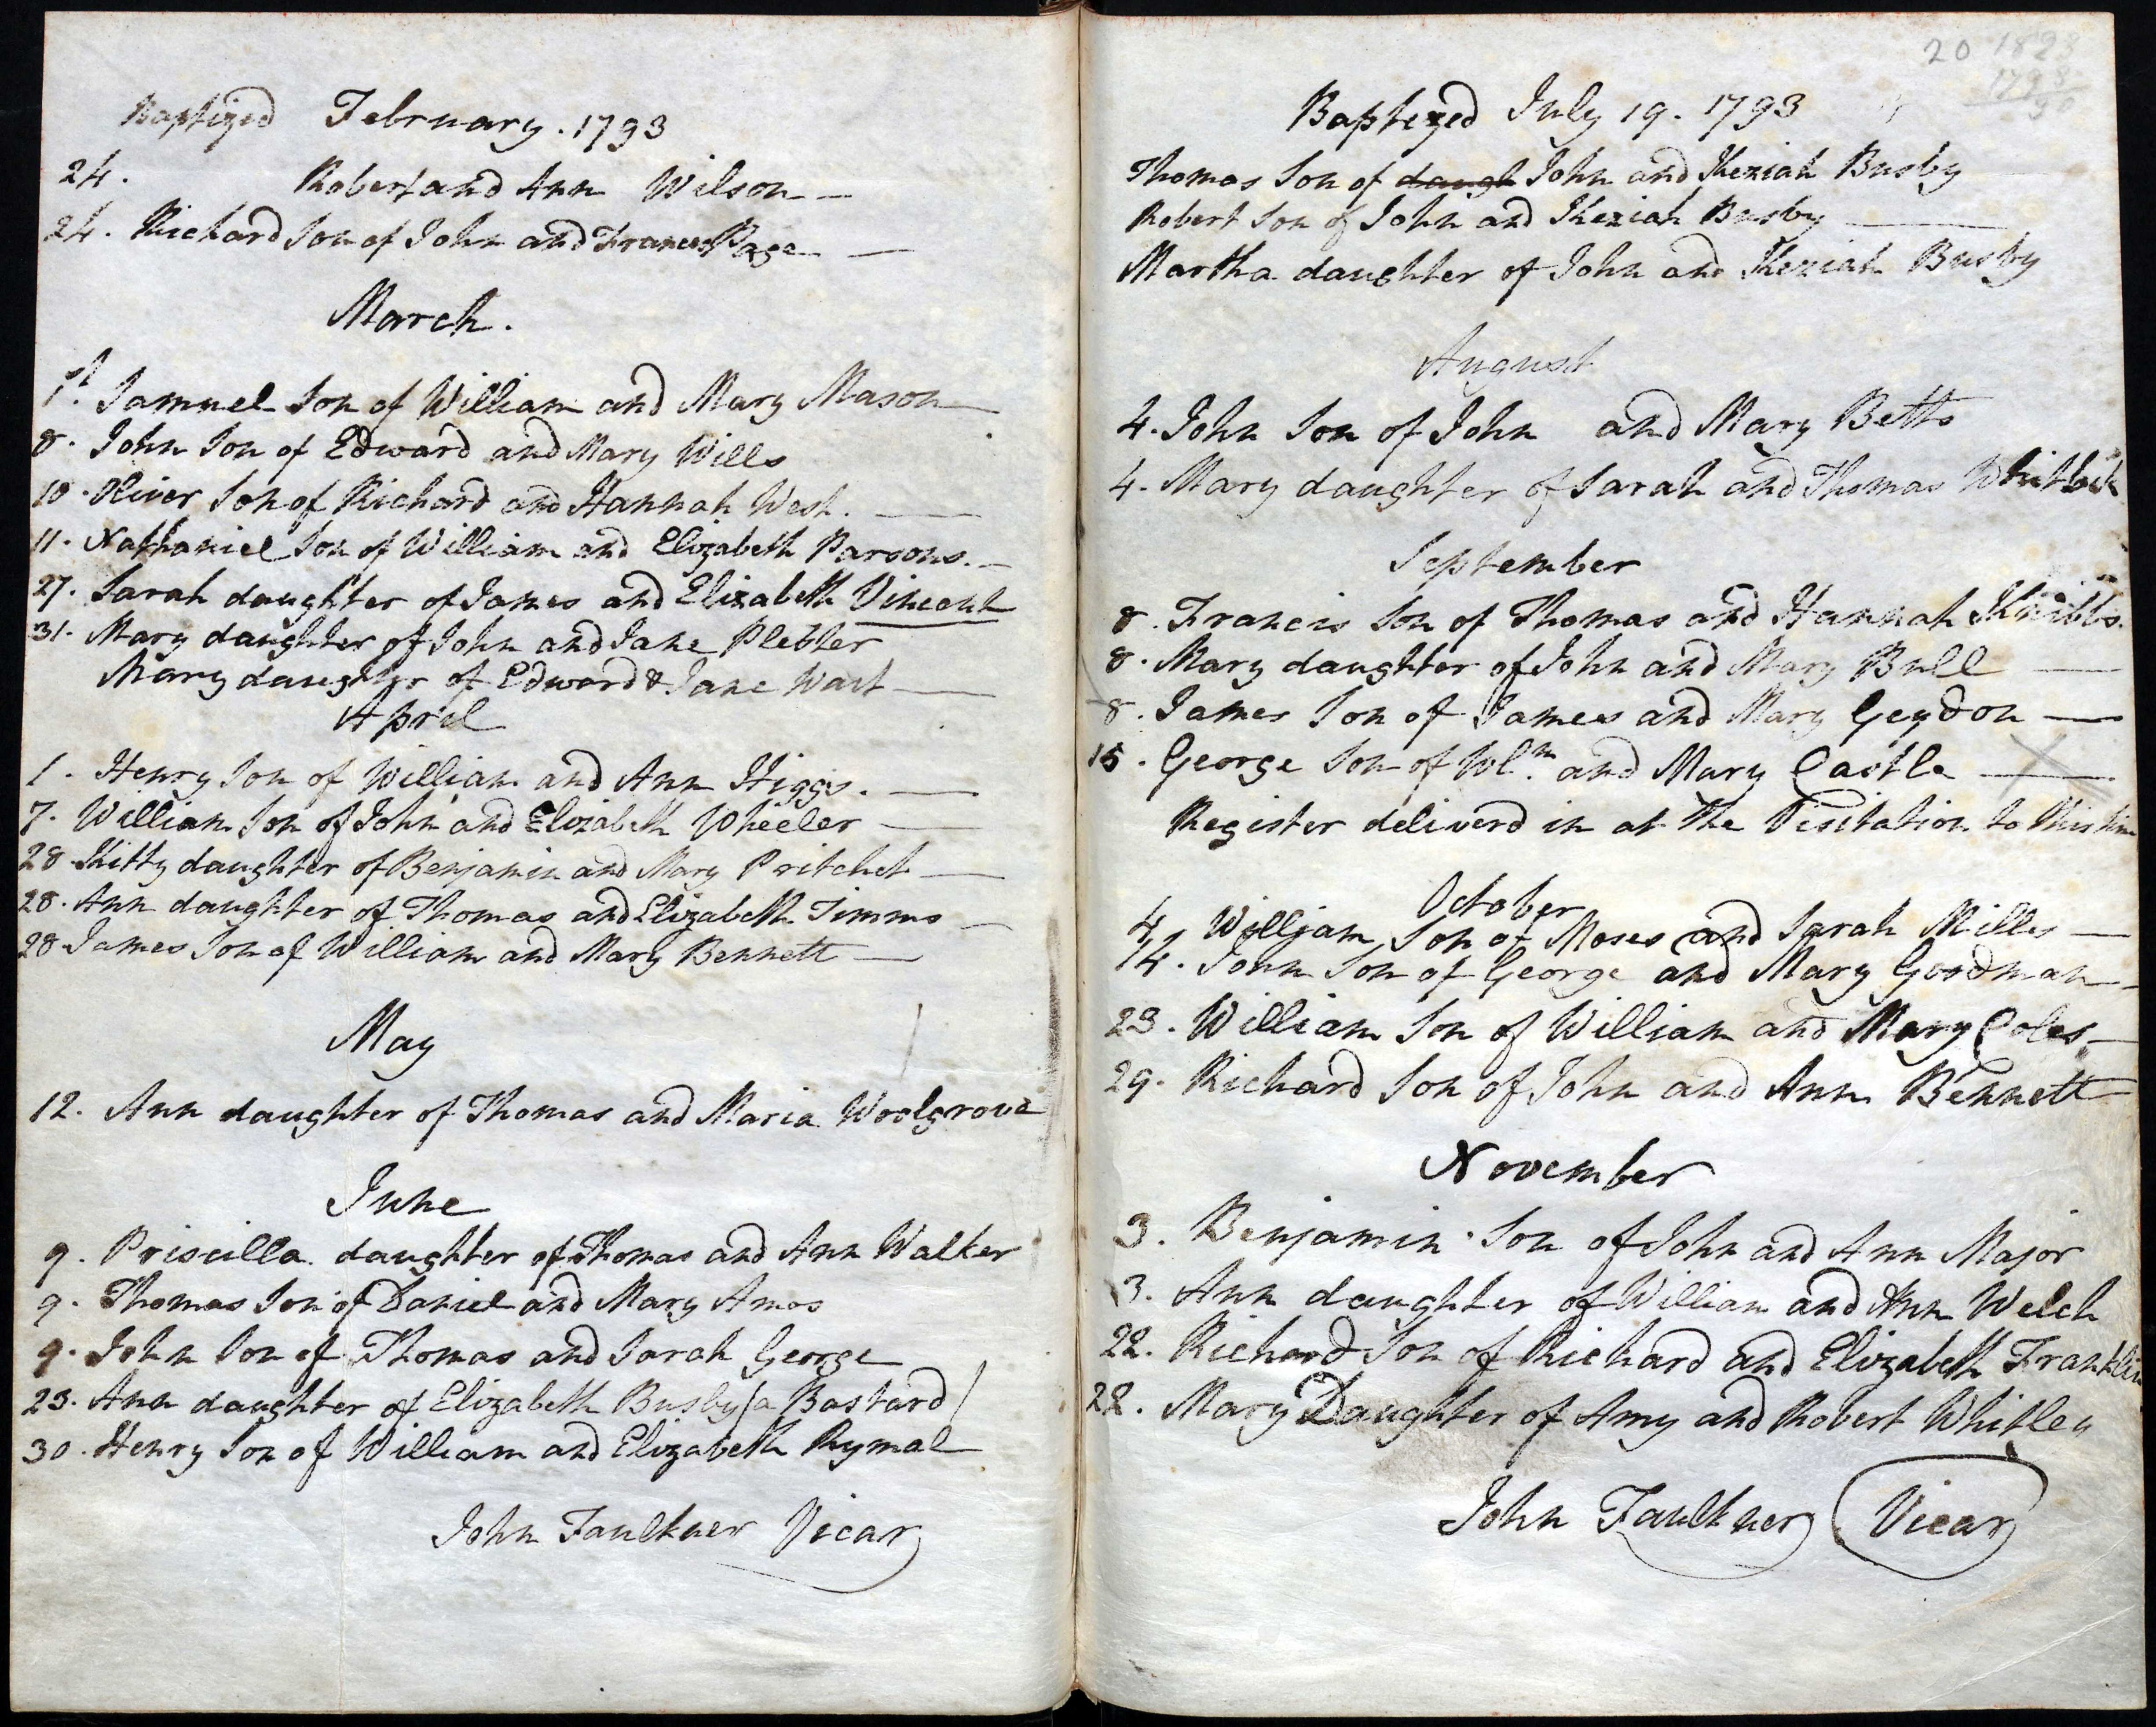 Baptized February. 1793
24. Robert and Ann Wilson
24. Richard Son of John and Frances Page
March.
1st. Samuel Son of William and Mary Mason
8. John Son of Edward and Mary Wills
10. Oliver Son of Richard and Hannah West.
11. Nathaniel Son of William and Elizabeth Parsons.
27. Sarah daughter of James and Elizabeth Vincent
31. Mary daughter of John and Jane Plebler
Mary daughter of Edward & Jane Wait
April
1. Henry Son of William and Ann Higgs.
7. William Son of John and Elizabeth Wheeler
28. Kitty daughter of Benjamin and Mary Pritchet
28. Ann daughter of Thomas and Elizabeth Timms
28 James Son of William and Mary Bennett
May
12. Ann daughter of Thomas and Maria Woolgrove
June
9. Priscilla daughter of Thomas and Ann Walker
9. Thomas Son of Daniel and Mary Amos
9. John Son of Thomas and Sarah George
23. Ann daughter of Elizabeth Busby (a Bastard)
30. Henry Son of William and Elizabeth Rymal
John Faulkner Vicar
20 1893
1793
Baptized July 19. 1793
Thomas Son of daugh John and Keziah Busby
Robert Son of John and Keziah Busby
Martha daughter of John and Keziah Busby
August
4. John Son of John and Mary Betts
4. Mary daughter of Sarah and Thomas
September
8. Francis Son of Thomas and Hannah Knibbs.
8. Mary daughter of John and Mary Bull
8. James Son of James and Mary Geydon
15. George Son of Wlm. and Mary Castle
Register deliverd in at the Visitation to this time
October
4. William Son of Moses and Sarah Mills
14. John Son of George and Mary Goodman
23. William Son of William and Mary Coles
29. Richard Son of John and Ann Bennett
November
3. Benjamin Son of John and Ann Major
3. Ann daughter of William and Ann Welch
22. Richard Son of Richard and Elizabeth Franklin
22. Mary Daughter of Amy and Robert Whitley
John Faulkner Vicar